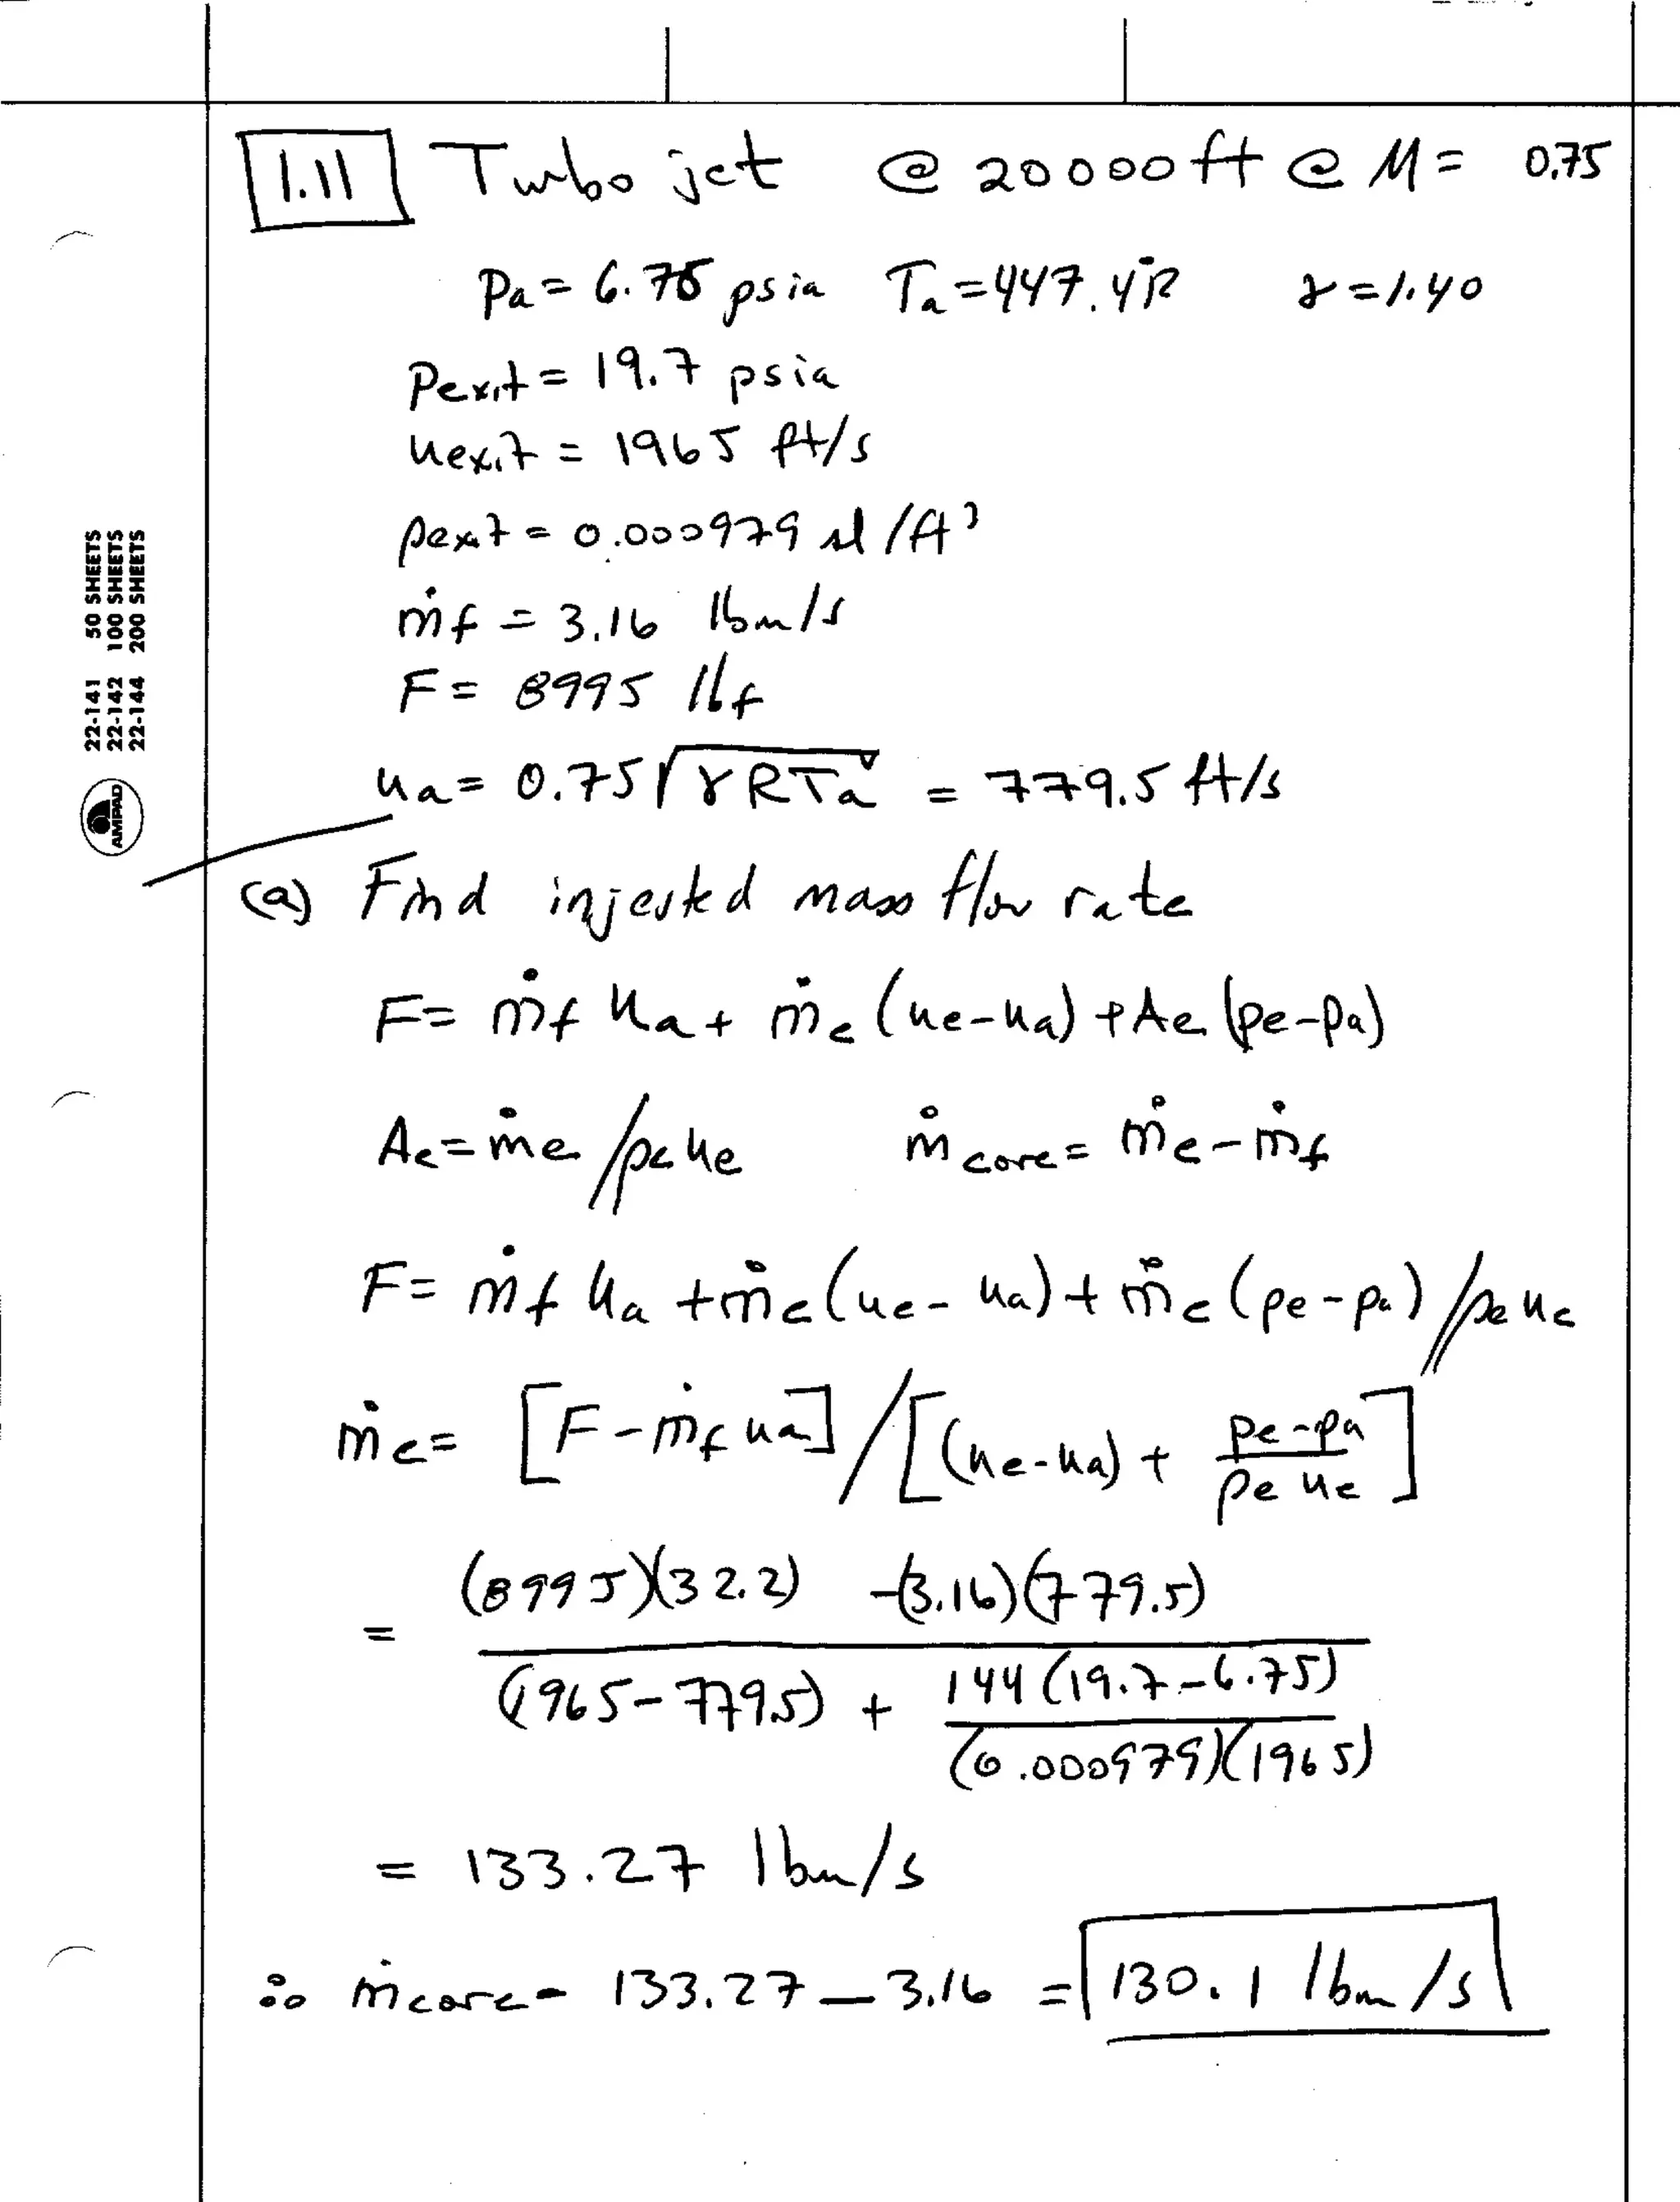 1.11 Turbojet @ 20000 ft @ M = 0.75
Pa = 6.75 psia Ta = 447.4°R γ = 1.40
Pexit = 19.7 psia
uexit = 1965 ft/s
ρexit = 0.000979 sl/ft³
ṁf = 3.16 lbm/s
F = 8995 lbf
ua = 0.75√γRTa = 779.5 ft/s
(a) Find injested mass flow rate
F = ṁf ua + ṁe (ue-ua) + Ae (pe-pa)
Ae = ṁe/ρe ue ṁcore = ṁe - ṁf
F = ṁf ua + ṁe (ue - ua) + ṁe (pe - pa) / ρe ue
ṁe = [F - ṁf ua] / [(ue-ua) + pe-pa / ρe ue]
= (8995)(32.2) - (3.16)(779.5)
(1965 - 779.5) + 144 (19.7 - 6.75)
(0.000979)(1965)
= 133.27 lbm/s
∴ ṁcore = 133.27 - 3.16 = 130.1 lbm/s
22-141 50 SHEETS
22-142 100 SHEETS
22-144 200 SHEETS
AMPAD